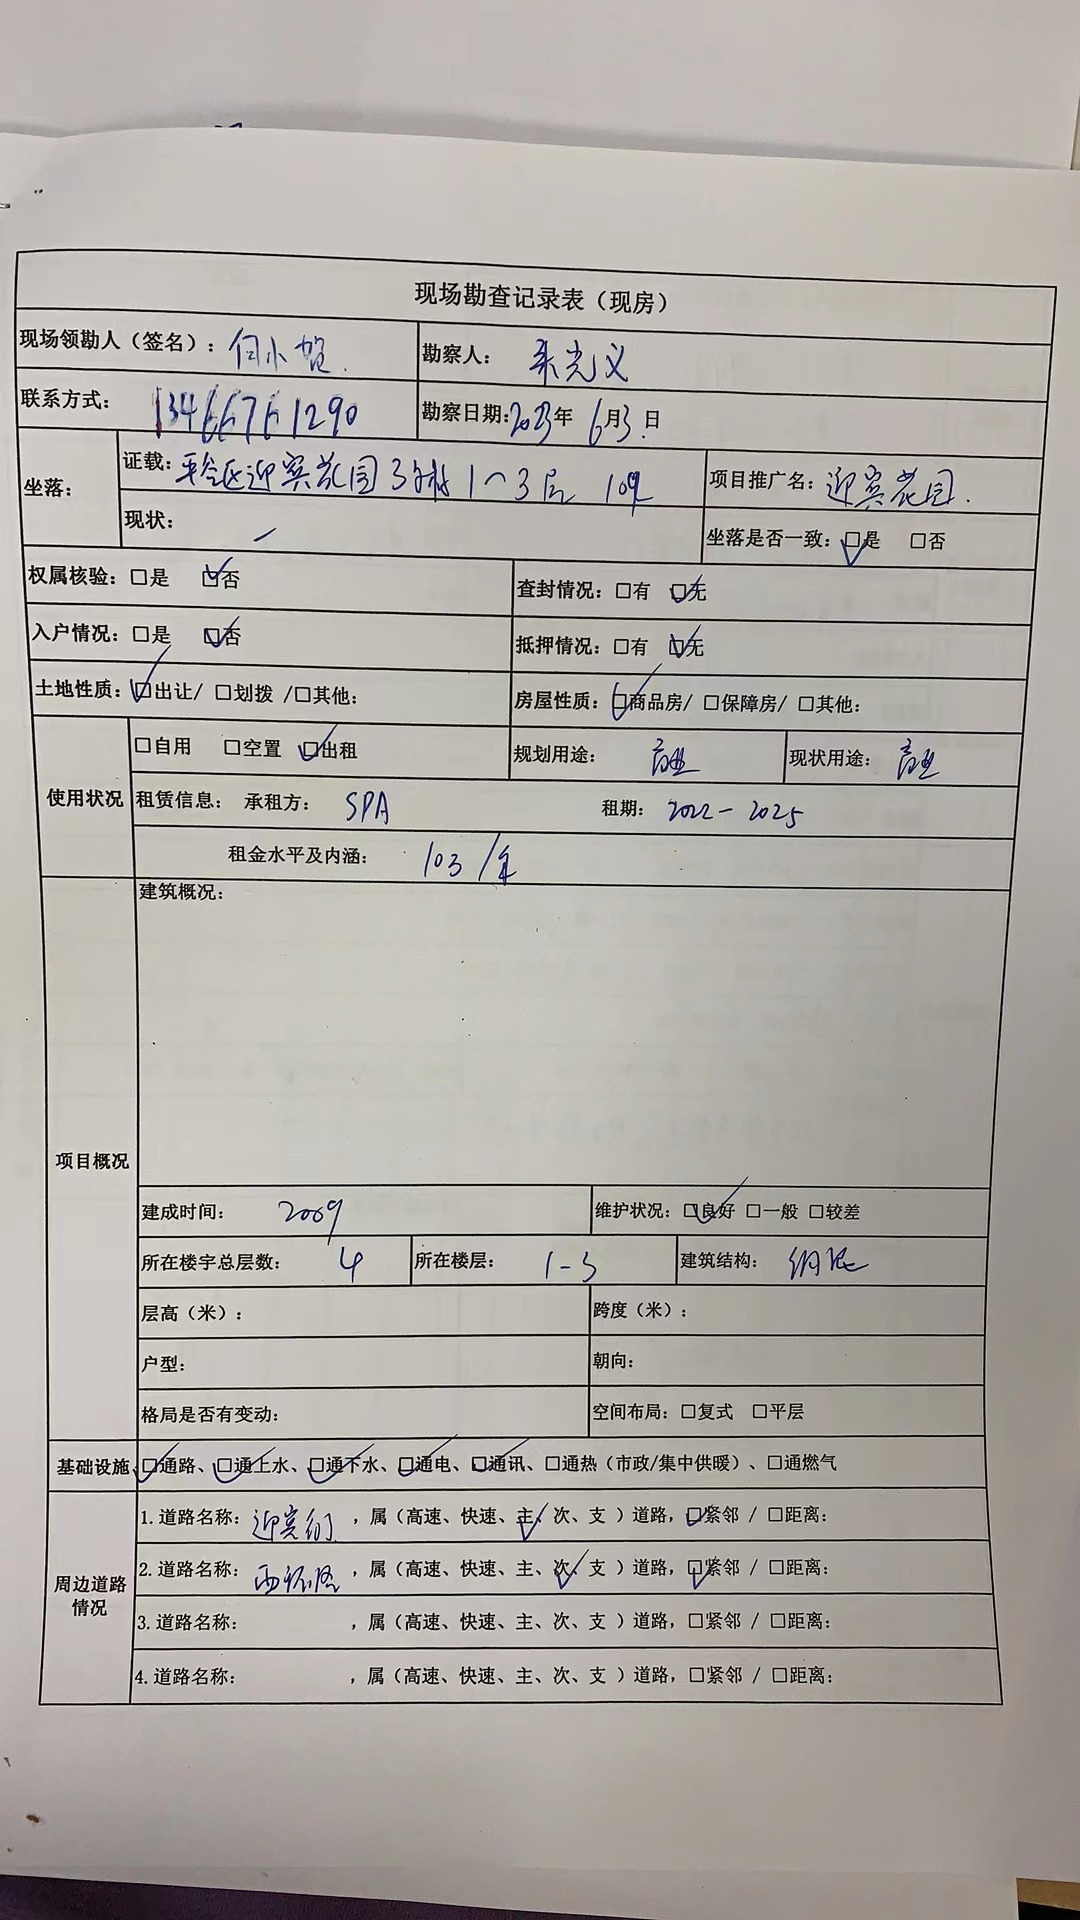 现场勘查记录表（现房）
现场领勘人（签名）： 何小 勘察人： 光义
联系方式： 13466761290 勘察日期：2023年 6月3日
坐落： 证载：平谷区迎宾花园3号楼1~3层 109 项目推广名：迎宾花园.
现状： 坐落是否一致：☑是 □否
权属核验：□是 ☑否 查封情况：□有 ☑无
入户情况：□是 ☑否 抵押情况：□有 ☑无
土地性质：☑出让/ □划拨 /□其他： 房屋性质：☑商品房/ □保障房/ □其他：
使用状况 □自用 □空置 ☑出租 规划用途： 商业 现状用途： 商业
租赁信息： 承租方： SPA 租期： 2022-2025
租金水平及内涵： 103/年
项目概况 建筑概况：
建成时间： 2009 维护状况：☑良好 □一般 □较差
所在楼宇总层数： 4 所在楼层： 1-3 建筑结构： 钢混
层高（米）： 跨度（米）：
户型： 朝向：
格局是否有变动： 空间布局：□复式 □平层
基础设施 ☑通路、☑通上水、☑通下水、☑通电、☑通讯、□通热（市政/集中供暖）、□通燃气
周边道路情况 1.道路名称：迎宾街 ，属（高速、快速、主✓、次、支 ）道路，☑紧邻 / □距离：
2.道路名称：西环路 ，属（高速、快速、主、次✓、支 ）道路，☑紧邻 / □距离：
3.道路名称： ，属（高速、快速、主、次、支 ）道路，□紧邻 / □距离：
4.道路名称： ，属（高速、快速、主、次、支 ）道路，□紧邻 / □距离：